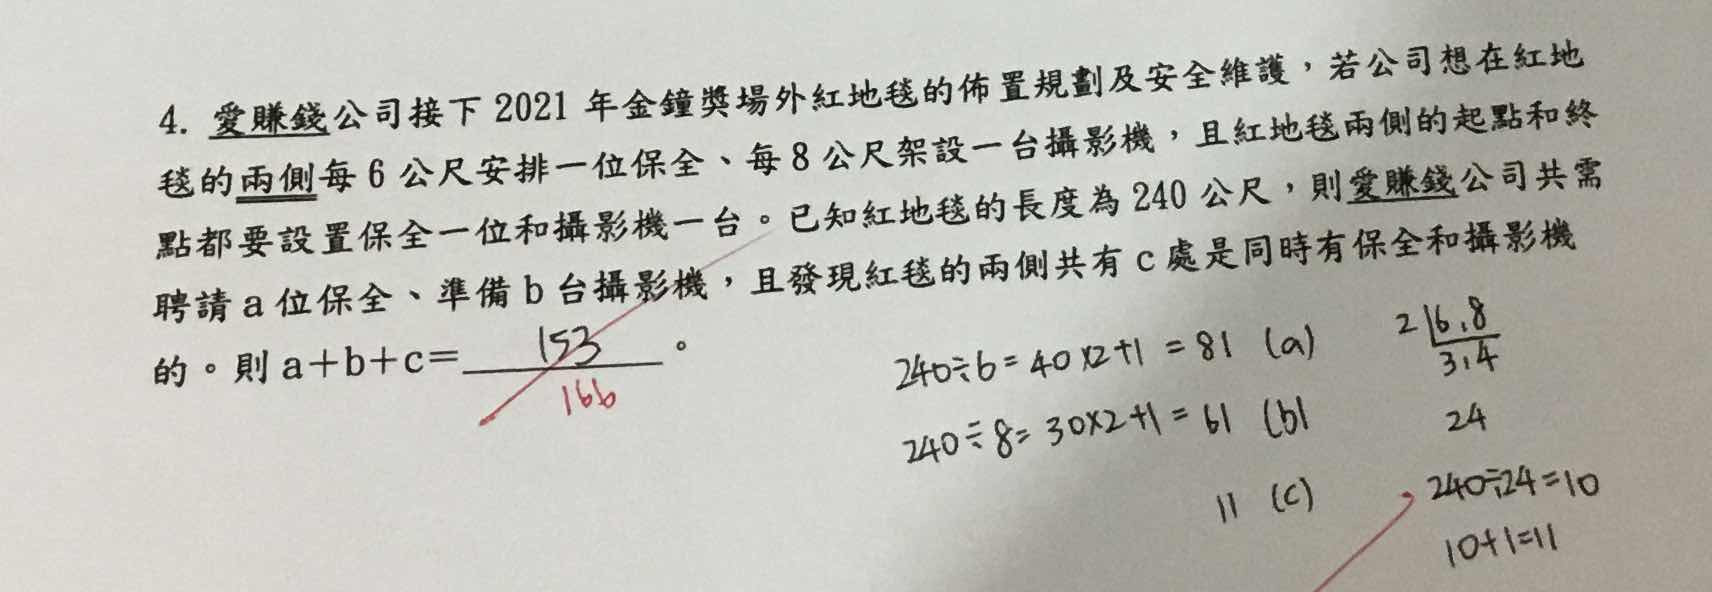 4. 愛賺錢公司接下 2021 年金鐘獎場外紅地毯的佈置規劃及安全維護，若公司想在紅地
毯的兩側每 6 公尺安排一位保全、每 8 公尺架設一台攝影機，且紅地毯兩側的起點和終
點都要設置保全一位和攝影機一台。已知紅地毯的長度為 240 公尺，則愛賺錢公司共需
聘請 a 位保全、準備 b 台攝影機，且發現紅毯的兩側共有 c 處是同時有保全和攝影機
的。則 a＋b＋c＝ 153 。
166
240÷6=40×2+1=81 (a)
240÷8=30×2+1=61 (b)
11 (c)
2 6,8
3,4
24
240÷24=10
10+1=11